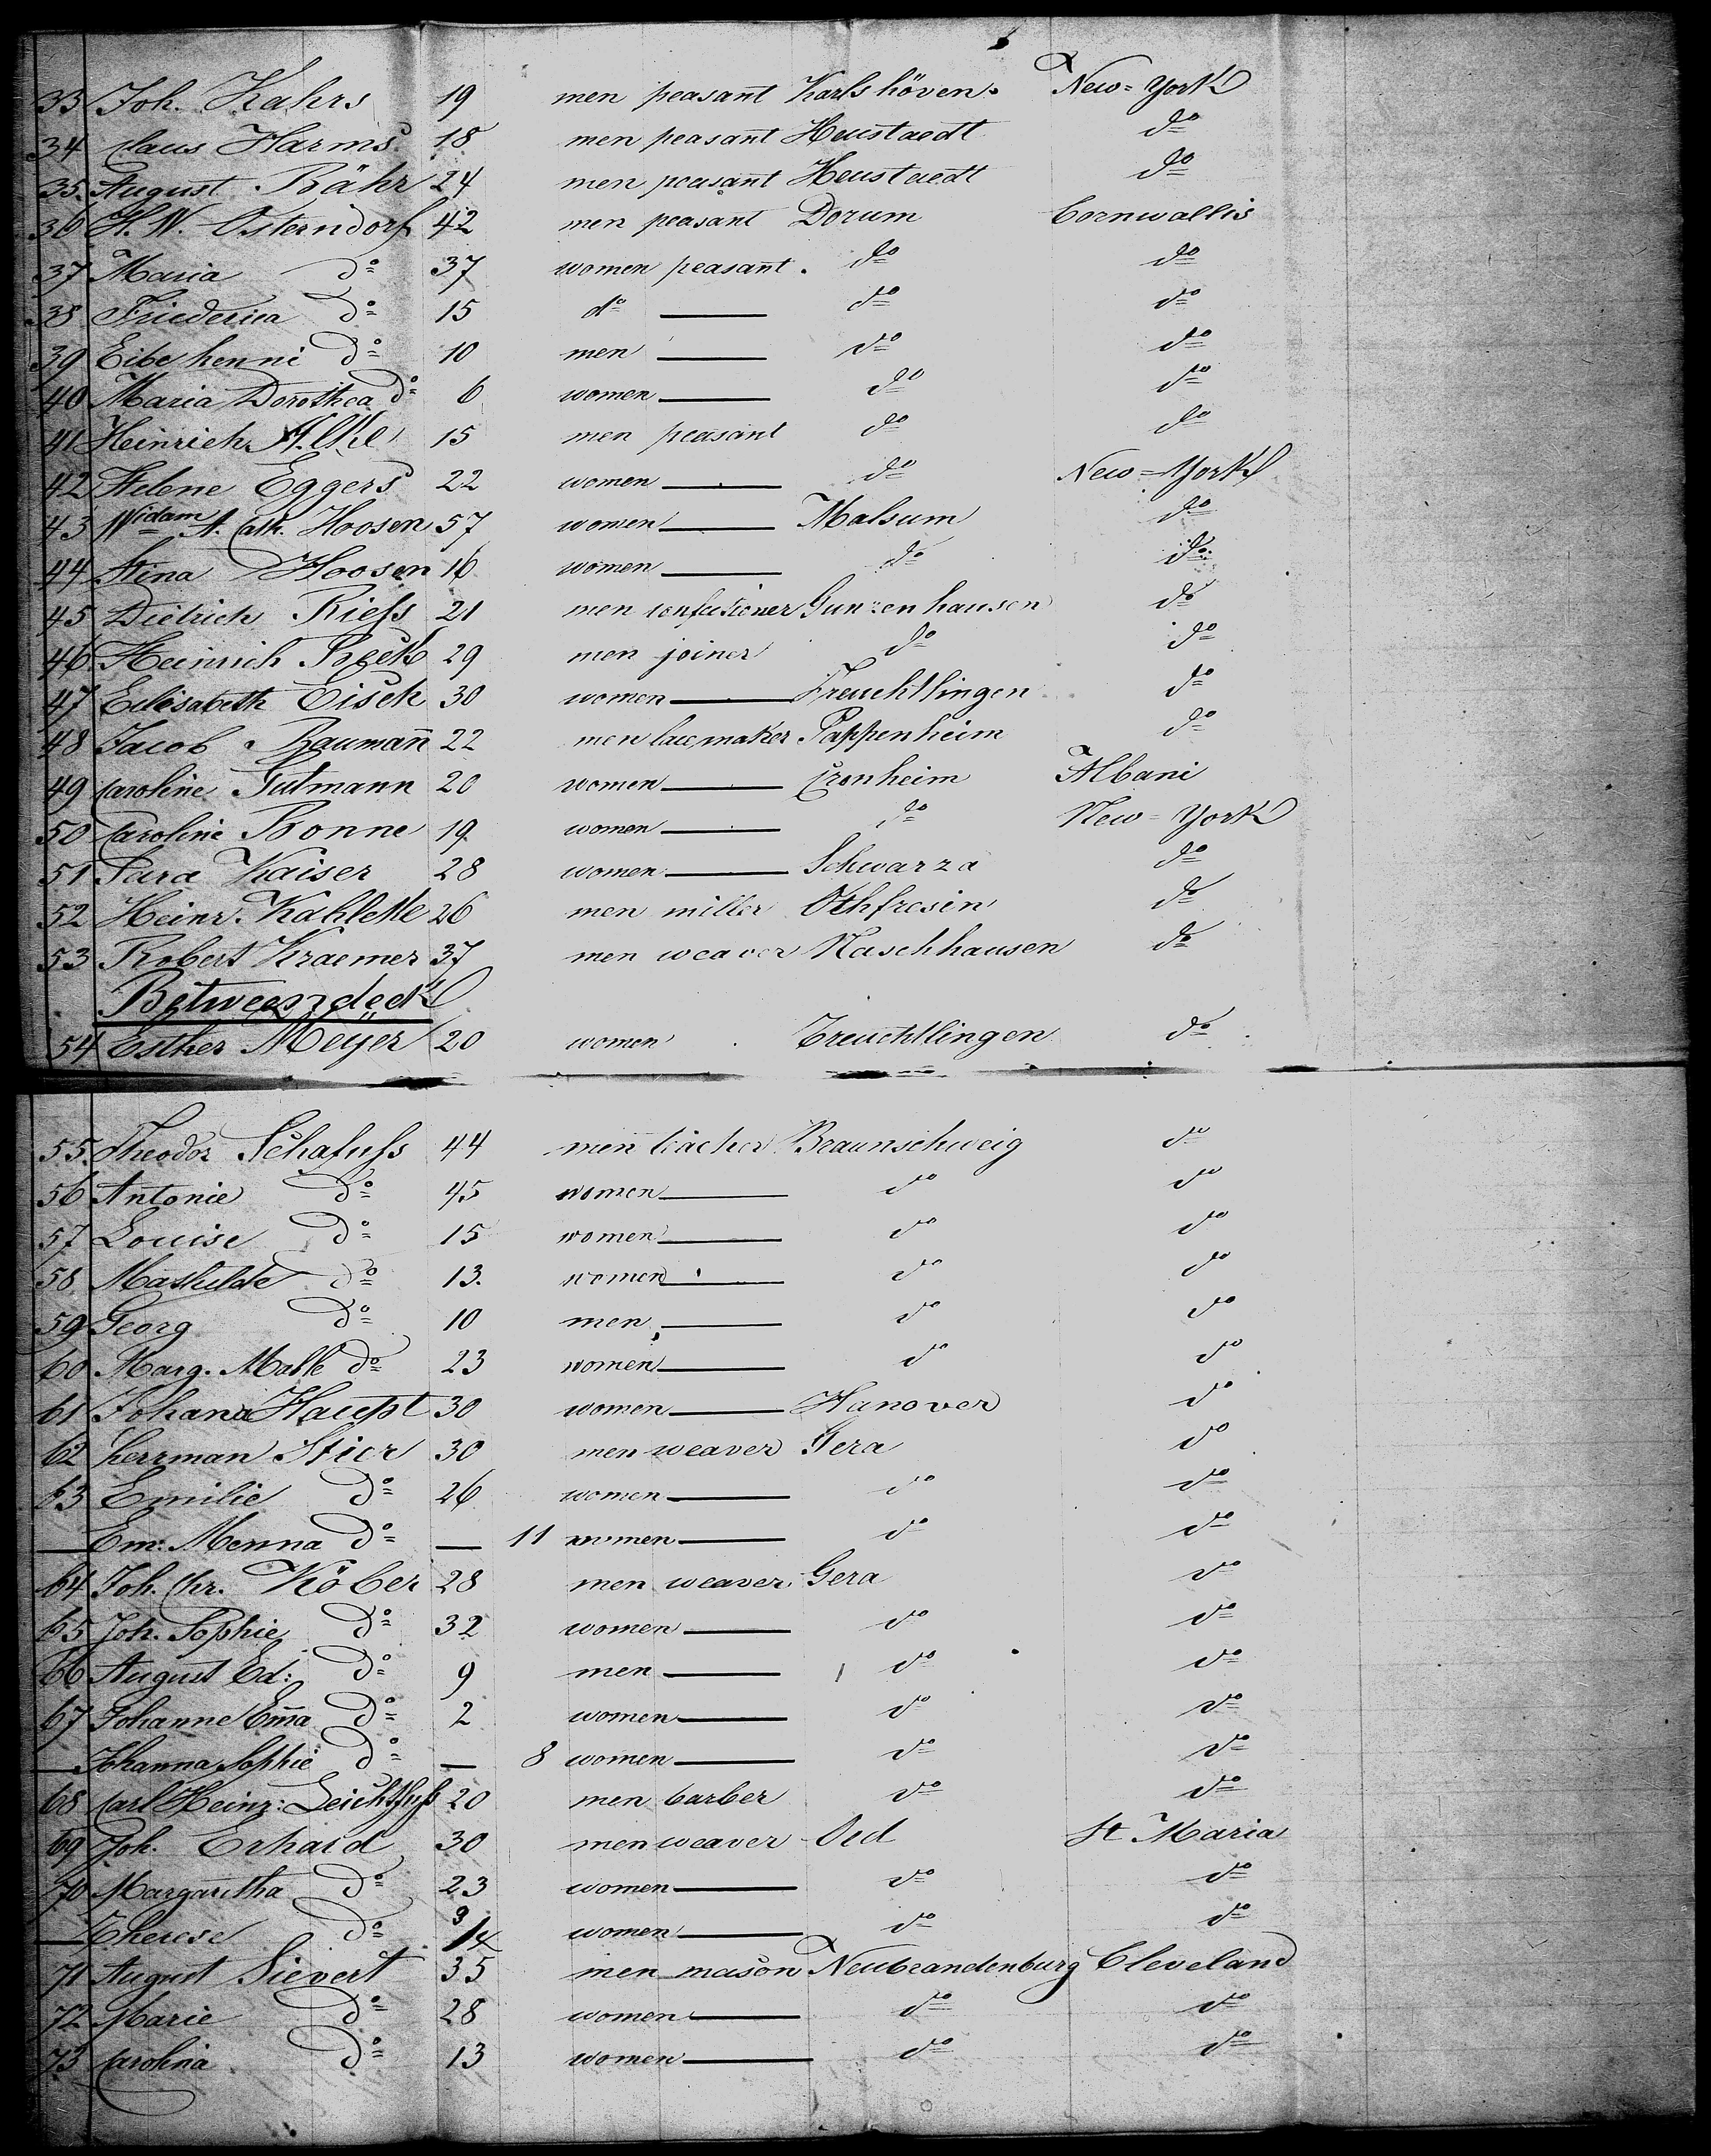 33 Joh. Kahrs 19 men peasant Karlshöven New-York
34 Claus Harms 18 men peasant Heustaedt do
35. August Bähr 24 men peasant Heustaedt do
36 H. W. Osterndorf 42 men peasant Dorum Cornwallis
37 Maria do 37 women peasant. do do
38 Friederica do 15 do — do do
39 Eibe henni do 10 men — do do
40 Maria Dorothea do 6 women — do do
41 Heinrich 15 men peasant do do
42 Helene Eggers 22 women — do New-York
43 Widam A. Cath. Hoosen 57 women — Malsum do
44 Stina Hoosen 16 women — do do
45 Dietrich Riefs 21 men confectioner Gunzenhausen do
46 Heinrich 29 men joiner do do
47 Eilisabeth Eisch 30 women — Treuchtlingen do
48 Jacob Baumañ 22 men lacemaker Pappenheim do
49 Caroline Gutmann 20 women — Cronheim Albani
50 Caroline Bonne 19 women — do New-York
51 Sara Kaiser 28 women — Schwarza do
52 Heinr. Kahle 26 men miller Othfresin do
53 Robert Kraemer 37 men weaver Naschhausen do
Betweendeck
54 Esther Meyer 20 women Treuchtlingen do
55. Theodor Schafufs 44 men teacher Braunschweig do
56 Antonie do 45 women — do do
57 Louise do 15 women — do do
58 Mathilde do 13. women — do do
59 Georg do 10 men — do do
60 Marg. do 23 women — do do
61 Johana Haupt 30 women — Hanover do
62 herrman Stier 30 men weaver Gera do
63 Emilie do 26 women — do do
— Em: Menna do — 11 women — do do
64 Joh. Chr. Köber 28 men weaver Gera do
65 Joh. Sophie do 32 women — do do
66 August Ed: do 9 men — do do
67 Johanne Em̄a do 2 women — do do
— Johanna Sophie do — 8 women — do do
68 Carl Heinr: Leichtfufs 20 men barber do do
69 Joh. Erhard 30 men weaver Oed St Maria
70 Margaretha do 23 women — do do
— Therese do women — do do
71 August Sievert 35 men mason Neubrandenburg Cleveland
72 Marie do 28 women — do do
73 Carolina do 13 women — do do